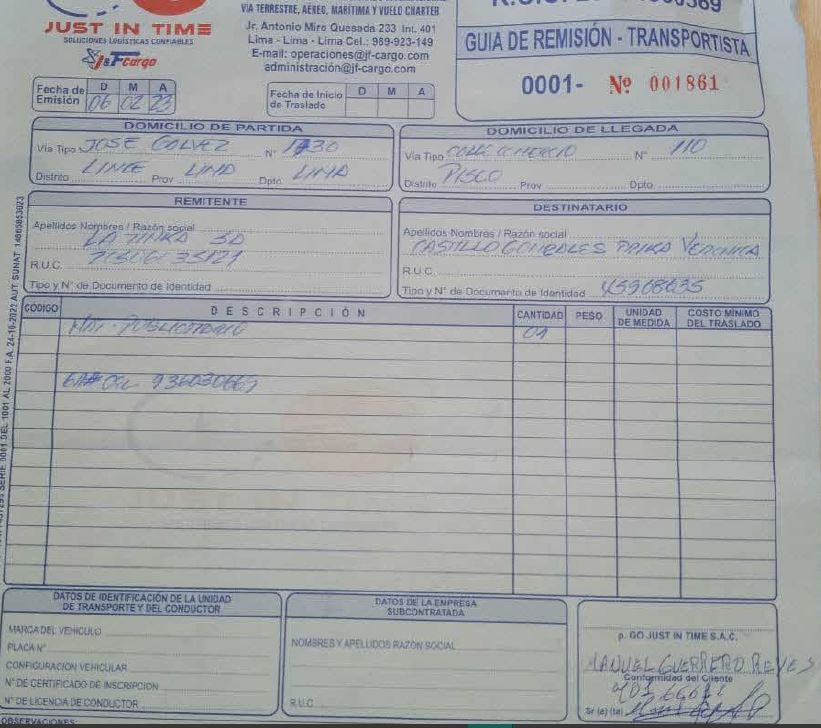 JUST IN TIME
SOLUCIONES LOGÍSTICAS CONFIABLES
J&Fcargo
VIA TERRESTRE, AÉREO, MARÍTIMA Y VUELO CHARTER
Jr. Antonio Miro Quesada 233 Int. 401
Lima - Lima - Lima Cel.: 989-923-149
E-mail: operaciones@jf-cargo.com
administración@jf-cargo.com
GUIA DE REMISIÓN - TRANSPORTISTA
0001- Nº 001861
Fecha de Emisión D M A
06 02 23
Fecha de Inicio de Traslado D M A
DOMICILIO DE PARTIDA
Vía Tipo JOSE GALVEZ Nº
Distrito LINCE Prov LIMA Dpto LIMA
DOMICILIO DE LLEGADA
Vía Tipo CALLE COMERCIO Nº 110
Distrito PISCO Prov Dpto
REMITENTE
Apellidos Nombres / Razón social
LA TINKA SA
R.U.C.
Tipo y Nº de Documento de Identidad
DESTINATARIO
Apellidos Nombres / Razón social
CASTILLO GONZALES VERONICA
R.U.C.
Tipo y Nº de Documento de Identidad
CÓDIGO DESCRIPCIÓN CANTIDAD PESO UNIDAD DE MEDIDA COSTO MÍNIMO DEL TRASLADO
MAT. PUBLICITARIO 01
CEL 936030669
DATOS DE IDENTIFICACIÓN DE LA UNIDAD DE TRANSPORTE Y DEL CONDUCTOR
MARCA DEL VEHICULO
PLACA Nº
CONFIGURACION VEHICULAR
Nº DE CERTIFICADO DE INSCRIPCION
Nº DE LICENCIA DE CONDUCTOR
DATOS DE LA EMPRESA SUBCONTRATADA
NOMBRES Y APELLIDOS RAZÓN SOCIAL
R.U.C.
p. GO JUST IN TIME S.A.C.
MANUEL GUERRERO REYES
Conformidad del Cliente
Sr (a) (ta)
OBSERVACIONES:
SERIE 0001 DEL 1001 AL 2000 F.A. 24-10-2022 AUT. SUNAT 14865853023